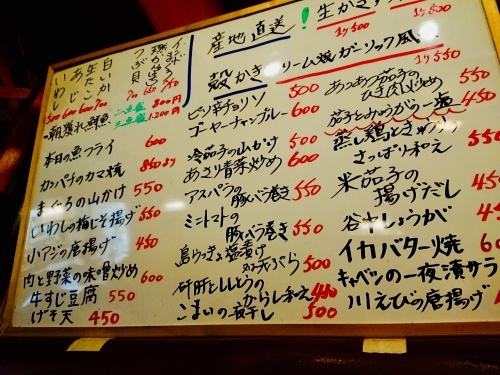 産地直送！
生かき
1ケ500
殻かき
クリーム焼ガーリック風
1ケ550
いわし
あじ
生たこ
白いか
つぶ貝
500 600 600 700
二点盛 800円
三点盛 1,200円
朝獲れ鮮魚
本日の魚フライ 600
カンパチのカマ焼 850
まぐろの山かけ 550
いわしの梅じそ揚げ 550
小アジの唐揚げ 450
肉と野菜の味噌炒め 600
牛すじ豆腐 550
げそ天 450
ピリ辛チョリソ 500
ゴーヤーチャンプルー 600
冷茄子の山かけ 500
あさり青菜炒め 600
アスパラの豚バラ巻き 550
ミニトマトの豚バラ巻き 550
島らっきょ塩漬け
500
砂肝とししとうのからし和え 450
こまいの一夜干し 500
あつあつ茄子のひき肉炒め 550
茄子とみょうがの一夜漬 450
蒸し鶏ときゅうりさっぱり和え 550
米茄子の揚げだし 450
谷中しょうが 450
イカバター焼
キャベツの一夜漬サラ
川えびの唐揚げ